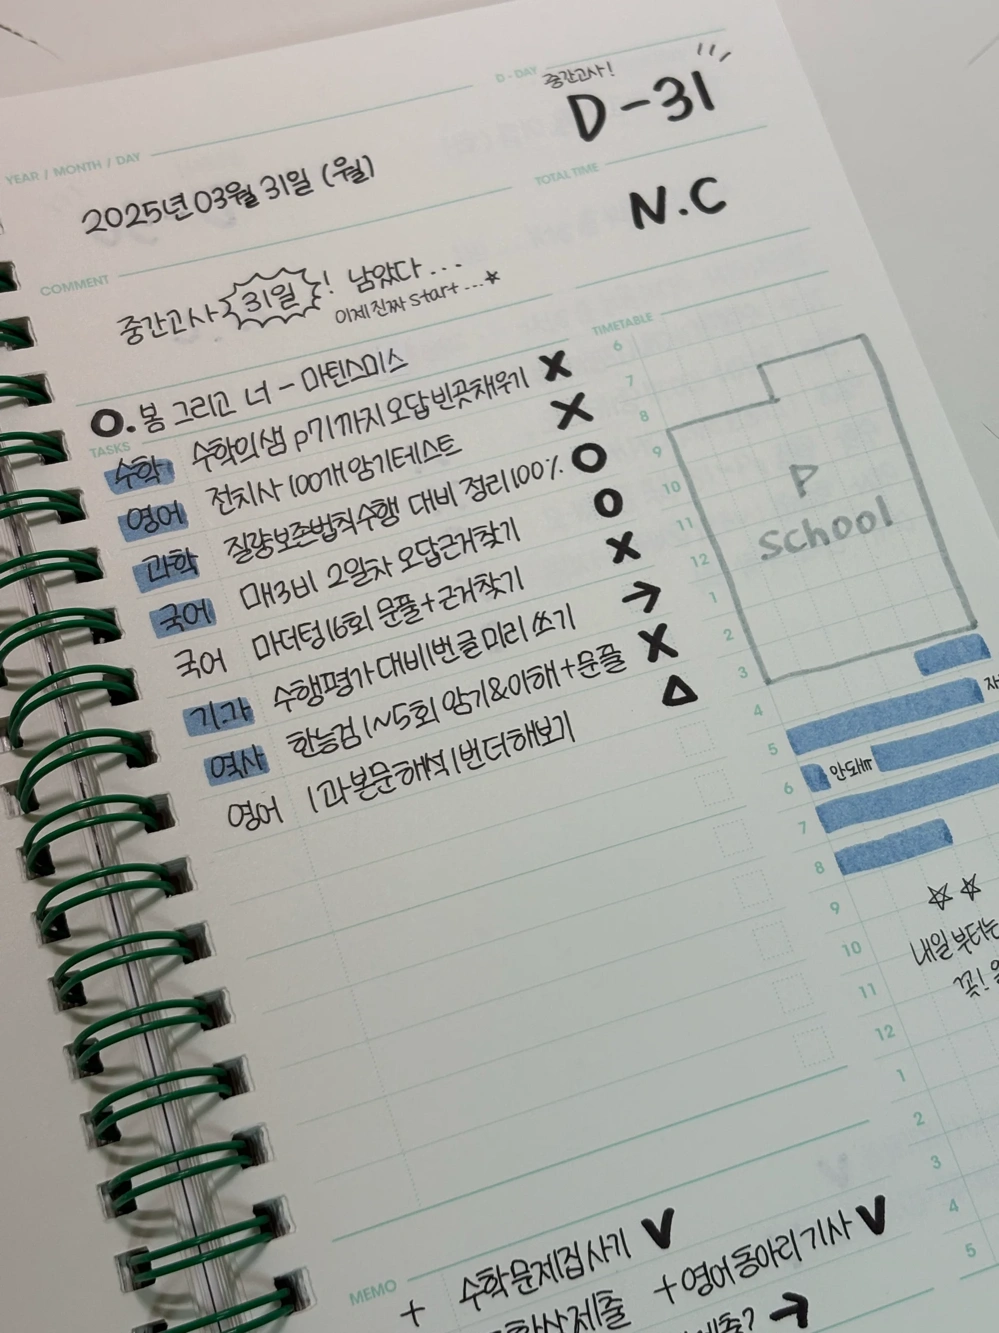 D - DAY
중간고사!
D-31
YEAR / MONTH / DAY
2025년 03월 31일 (월)
TOTAL TIME
N.C
COMMENT
중간고사 31일! 남았다...
이제 진짜 start...★
O. 봄 그리고 너 - 마틴스미스
TASKS
수학 수학의샘 p71까지 오답 빈곳채우기 X
영어 전치사 100개 암기테스트 X
과학 질량보존법칙수행 대비 정리 100% O
국어 매3비 2일차 오답근거찾기 O
국어 마더텅 16회 문풀+근거찾기 X
기.가 수행평가대비 번글 미리 쓰기 →
역사 한능검 1~5회 암기&이해+문풀 X
영어 1과 본문 해석 1번 더 해보기 △
TIMETABLE
6
7
8
9
10
11
12
1
2
3
4
5
6
7
8
9
10
11
12
1
2
3
4
5
P
school
안돼ㅠ
☆☆
내일부터는
꼭!
MEMO
+ 수학 문제집 사기 V
제출 +영어동아리 기사 V
→